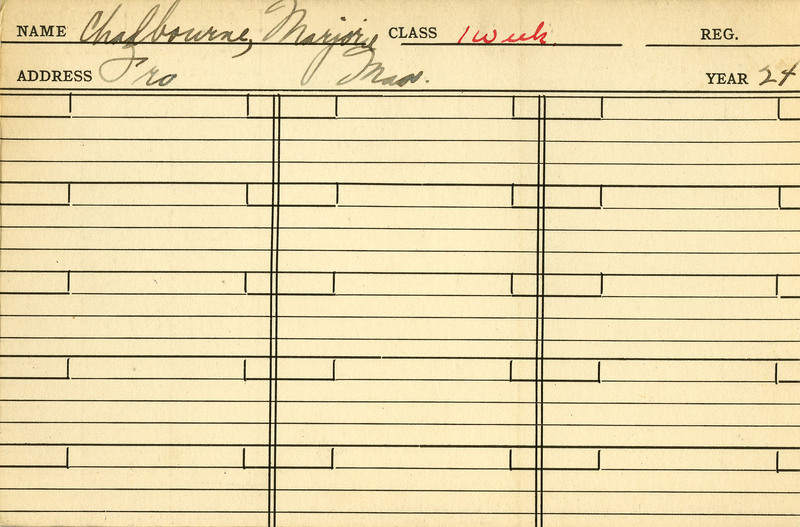 NAME Chadbourne, Marjorie CLASS 1 week. REG.
ADDRESS Fro Mass. YEAR 24